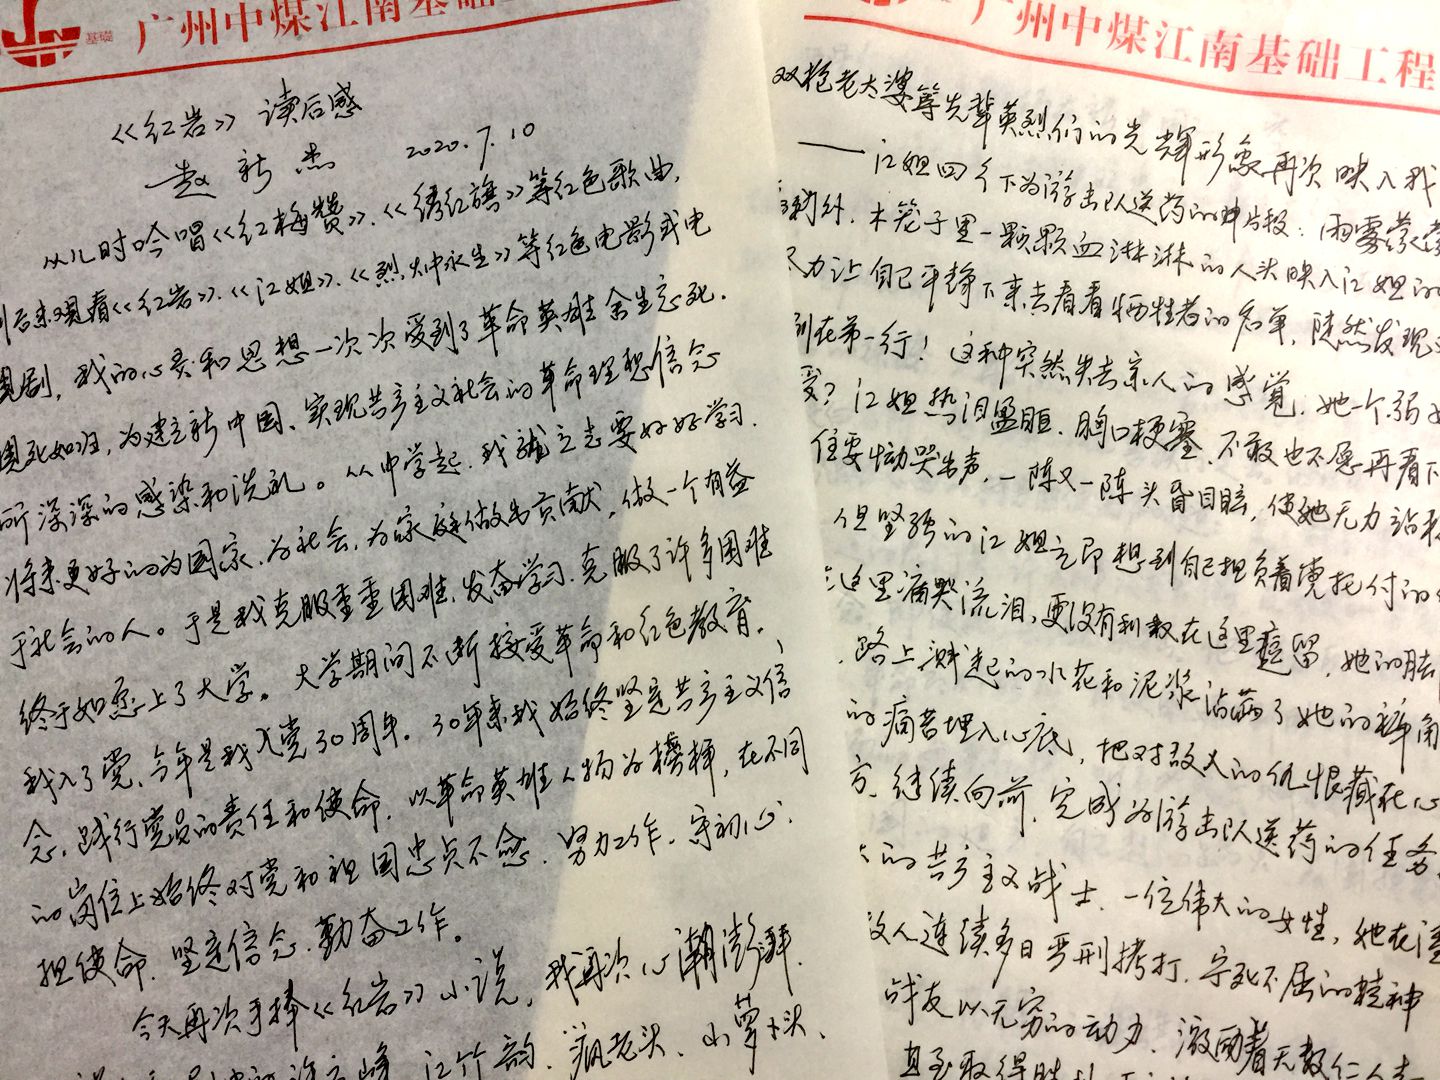 基础
广州中煤江南基础工
《红岩》读后感
赵新杰 2020.7.10
从儿时吟唱《红梅赞》、《绣红旗》等红色歌曲,
到后来观看《红岩》、《江姐》、《烈火中永生》等红色电影或电
视剧,我的心灵和思想一次次受到了革命英雄舍生忘死、
视死如归,为建立新中国、实现共产主义社会的革命理想信念
所深深的感染和洗礼。从中学起,我就立志要好好学习,
将来更好的为国家、为社会、为家庭做出贡献,做一个有益
于社会的人。于是我克服重重困难,发奋学习,克服了许多困难
终于如愿上了大学。大学期间不断接受革命和红色教育,
我入了党,今年是我入党30周年。30年来我始终坚定共产主义信
念,践行党员的责任和使命,以革命英雄人物为榜样,在不同
的岗位上始终对党和祖国忠贞不愈,努力工作,守初心、
担使命,坚定信念,勤奋工作。
今天再次手捧《红岩》小说,我再次心潮澎湃,
许云峰、江竹韵、疯老头、小萝卜头、
广州中煤江南基础工程
双枪老太婆等先辈英烈们的光辉形象再次映入我
——江姐四个下为游击队送药的片段:雨雾蒙蒙
外,木笼子里一颗颗血淋淋的人头映入江姐的
力让自己平静下来去看看牺牲者的名单,陡然发现
列在第一行!这种突然失去亲人的感觉,她一个弱
受?江姐热泪盈眶,胸口梗塞,不敢也不愿再看下
住要恸哭出声,一阵又一阵头昏目眩,使她无力站
但坚强的江姐立即想到自己担负着党托付的
这里痛哭流泪,更没有利权在这里逗留,她的
路上溅起的水花和泥浆沾满了她的裤角
的痛苦埋入心底,把对敌人的仇恨藏在心
方,继续向前,完成为游击队送药的任务
的共产主义战士,一位伟大的女性,她在
敌人连续多日严刑拷打,宁死不屈的精神
战友以无穷的动力,激励着无数仁人
直至取得胜利